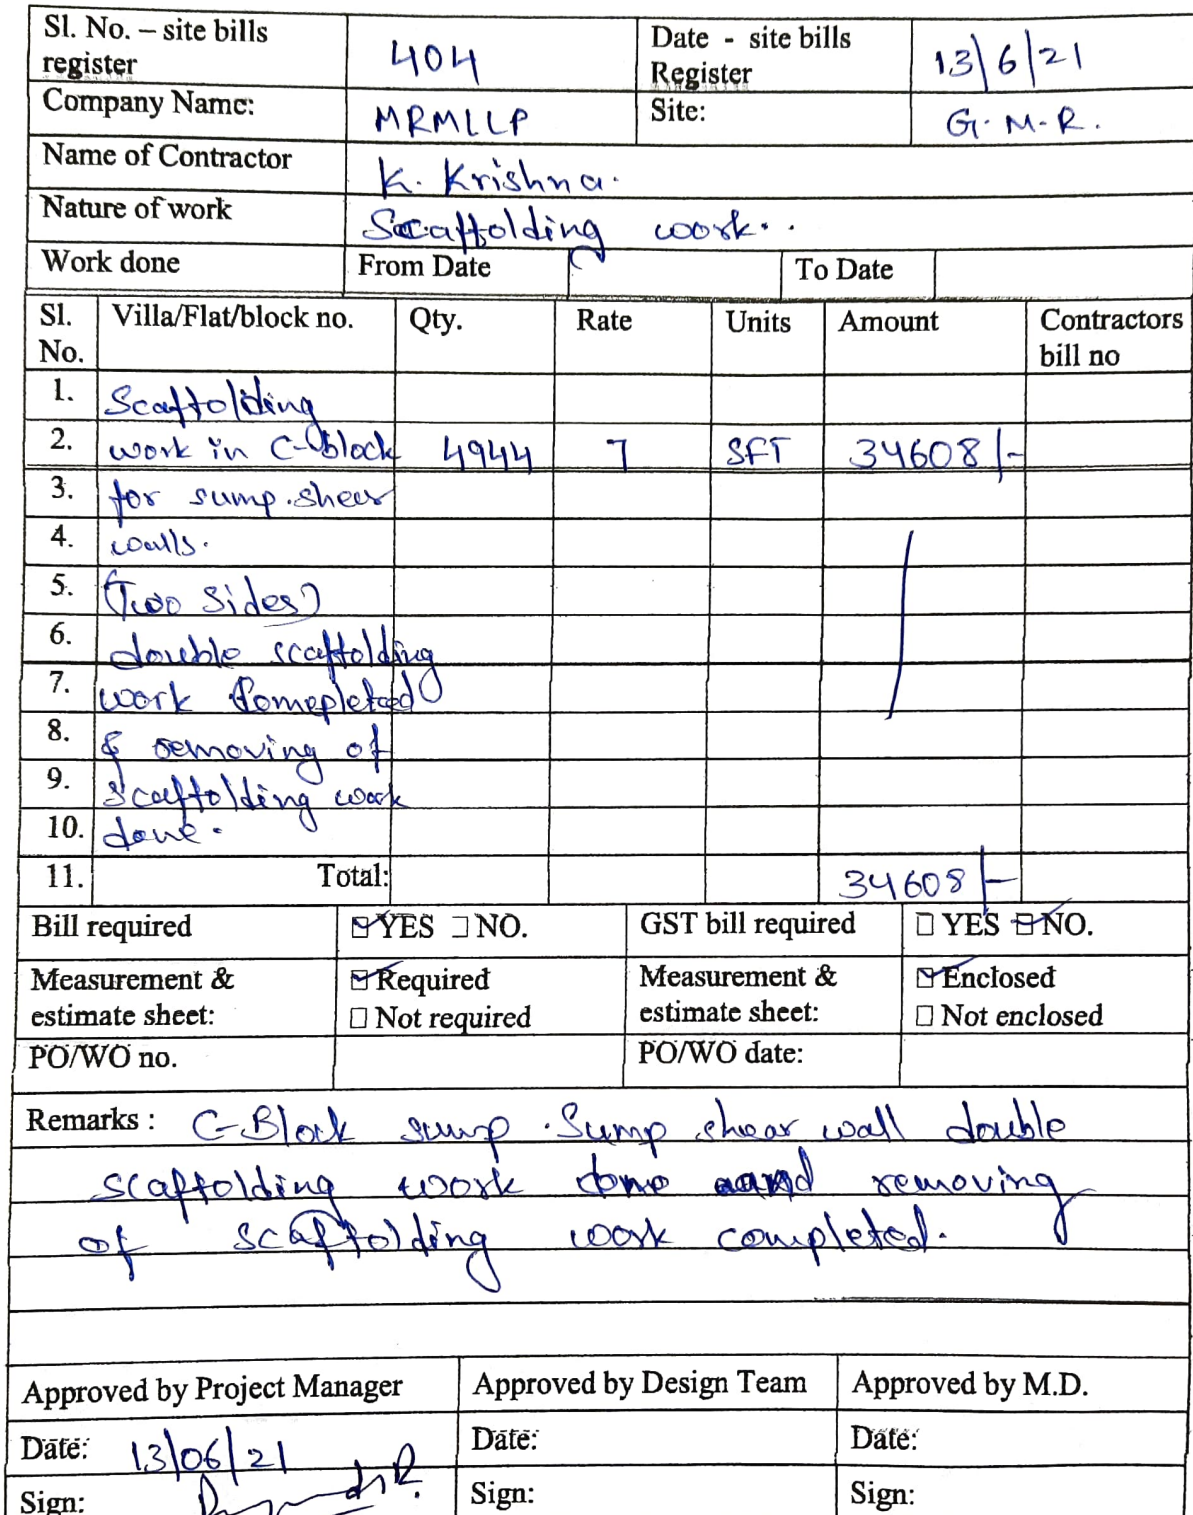 Sl. No. – site bills register 404 Date - site bills Register 13/6/21
Company Name: MRMLLP Site: G.M.R.
Name of Contractor K. Krishna.
Nature of work Scaffolding work..
Work done From Date To Date
Sl. No. Villa/Flat/block no. Qty. Rate Units Amount Contractors bill no
1. Scaffolding
2. work in C-block 4944 7 SFT 34608/-
3. for sump shear
4. walls.
5. (Two Sides)
6. double scaffolding
7. work Comepleted
8. & removing of
9. scaffolding work
10. done.
11. Total: 34608/-
Bill required ☑ YES ☐ NO. GST bill required ☐ YES ☑ NO.
Measurement & estimate sheet: ☑ Required ☐ Not required Measurement & estimate sheet: ☑ Enclosed ☐ Not enclosed
PO/WO no. PO/WO date:
Remarks : C-Block sump . Sump shear wall double
scaffolding work done and removing
of scaffolding work completed.
Approved by Project Manager Approved by Design Team Approved by M.D.
Date: 13/06/21 Date: Date:
Sign: Sign: Sign: